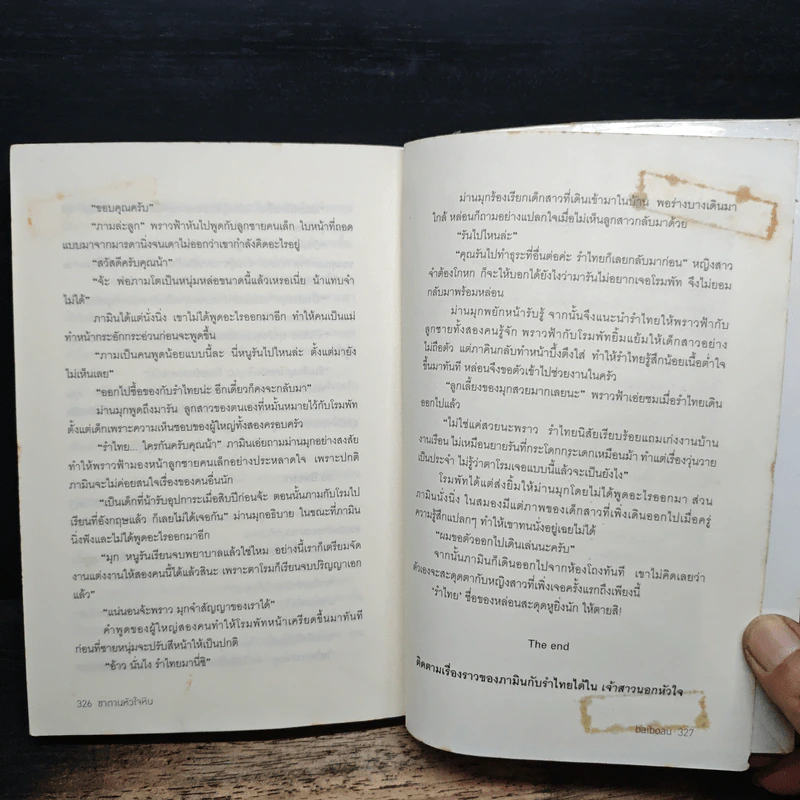 "ขอบคุณครับ"
"ภามล่ะลูก" พราวฟ้าหันไปพูดกับลูกชายคนเล็ก ใบหน้าที่ถอด
แบบมาจากมารดานิ่งจนเดาไม่ออกว่าเขากำลังคิดอะไรอยู่
"สวัสดีครับคุณน้า"
"จ้ะ พ่อภามโตเป็นหนุ่มหล่อขนาดนี้แล้วเหรอเนี่ย น้าแทบจำ
ไม่ได้"
ภามินได้แต่นั่งนิ่ง เขาไม่ได้พูดอะไรออกมาอีก ทำให้คนเป็นแม่
ทำหน้ากระอักกระอ่วนก่อนจะพูดขึ้น
"ภามเป็นคนพูดน้อยแบบนี้ละ นี่หนูรันไปไหนล่ะ ตั้งแต่มายัง
ไม่เห็นเลย"
"ออกไปซื้อของกับรำไทยน่ะ อีกเดี๋ยวก็คงจะกลับมา"
ม่านมุกพูดถึงมารัน ลูกสาวของตนเองที่หมั้นหมายไว้กับโรมพัท
ตั้งแต่เด็กเพราะความเห็นชอบของผู้ใหญ่ทั้งสองครอบครัว
"รำไทย... ใครกันครับคุณน้า" ภามินเอ่ยถามม่านมุกอย่างสงสัย
ทำให้พราวฟ้ามองหน้าลูกชายคนเล็กอย่างประหลาดใจ เพราะปกติ
ภามินจะไม่ค่อยสนใจเรื่องของคนอื่นนัก
"เป็นเด็กที่น้ารับอุปการะเมื่อสิบปีก่อนจ้ะ ตอนนั้นภามกับโรมไป
เรียนที่อังกฤษแล้ว ก็เลยไม่ได้เจอกัน" ม่านมุกอธิบาย ในขณะที่ภามิน
นั่งฟังและไม่ได้พูดอะไรออกมาอีก
"มุก หนูรันเรียนจบพยาบาลแล้วใช่ไหม อย่างนี้เราก็เตรียมจัด
งานแต่งงานให้สองคนนี้ได้แล้วสินะ เพราะตาโรมก็เรียนจบปริญญาเอก
แล้ว"
"แน่นอนจ้ะพราว มุกจำสัญญาของเราได้"
คำพูดของผู้ใหญ่สองคนทำให้โรมพัทหน้าเครียดขึ้นมาทันที
ก่อนที่ชายหนุ่มจะปรับสีหน้าให้เป็นปกติ
"อ้าว นั่นไง รำไทยมานี่ซิ"
326 ซาตานหัวใจหิน
ม่านมุกร้องเรียกเด็กสาวที่เดินเข้ามาในบ้าน พอร่างบางเดินมา
ใกล้ หล่อนก็ถามอย่างแปลกใจเมื่อไม่เห็นลูกสาวกลับมาด้วย
"รันไปไหนล่ะ"
"คุณรันไปทำธุระที่อื่นต่อค่ะ รำไทก็เลยกลับมาก่อน" หญิงสาว
จำต้องโกหก ก็จะให้บอกได้ยังไงว่ามารันไม่อยากเจอโรมพัท จึงไม่ยอม
กลับมาพร้อมหล่อน
ม่านมุกพยักหน้ารับรู้ จากนั้นจึงแนะนำรำไทยให้พราวฟ้ากับ
ลูกชายทั้งสองคนรู้จัก พราวฟ้ากับโรมพัทยิ้มแย้มให้เด็กสาวอย่าง
ไม่ถือตัว แต่ภาคินกลับทำหน้าบึ้งตึงใส่ ทำให้รำไทยรู้สึกน้อยเนื้อต่ำใจ
ขึ้นมาทันที หล่อนจึงขอตัวเข้าไปช่วยงานในครัว
"ลูกเลี้ยงของมุกสวยมากเลยนะ" พราวฟ้าเอ่ยชมเมื่อรำไทยเดิน
ออกไปแล้ว
"ไม่ใช่แค่สวยนะพราว รำไทยนิสัยเรียบร้อยแถมเก่งงานบ้าน
งานเรือน ไม่เหมือนยายรันที่กระโดกกระเดกเหมือนม้า ทำแต่เรื่องวุ่นวาย
เป็นประจำ ไม่รู้ว่าตาโรมเจอแบบนี้แล้วจะเป็นยังไง"
โรมพัทได้แต่ส่งยิ้มให้ม่านมุกโดยไม่ได้พูดอะไรออกมา ส่วน
ภามินนั่งนิ่ง ในสมองมีแต่ภาพของเด็กสาวที่เพิ่งเดินออกไปเมื่อครู่
ความรู้สึกแปลกๆ ทำให้เขาทนนั่งอยู่เฉยไม่ได้
"ผมขอตัวออกไปเดินเล่นนะครับ"
จากนั้นภามินก็เดินออกไปจากห้องโถงทันที เขาไม่คิดเลยว่า
ตัวเองจะสะดุดตากับหญิงสาวที่เพิ่งเจอครั้งแรกถึงเพียงนี้
'รำไทย' ชื่อของหล่อนสะดุดหูยิ่งนัก ให้ตายสิ!
The end
ติดตามเรื่องราวของภามินกับรำไทยได้ใน เจ้าสาวนอกหัวใจ
baiboau 327